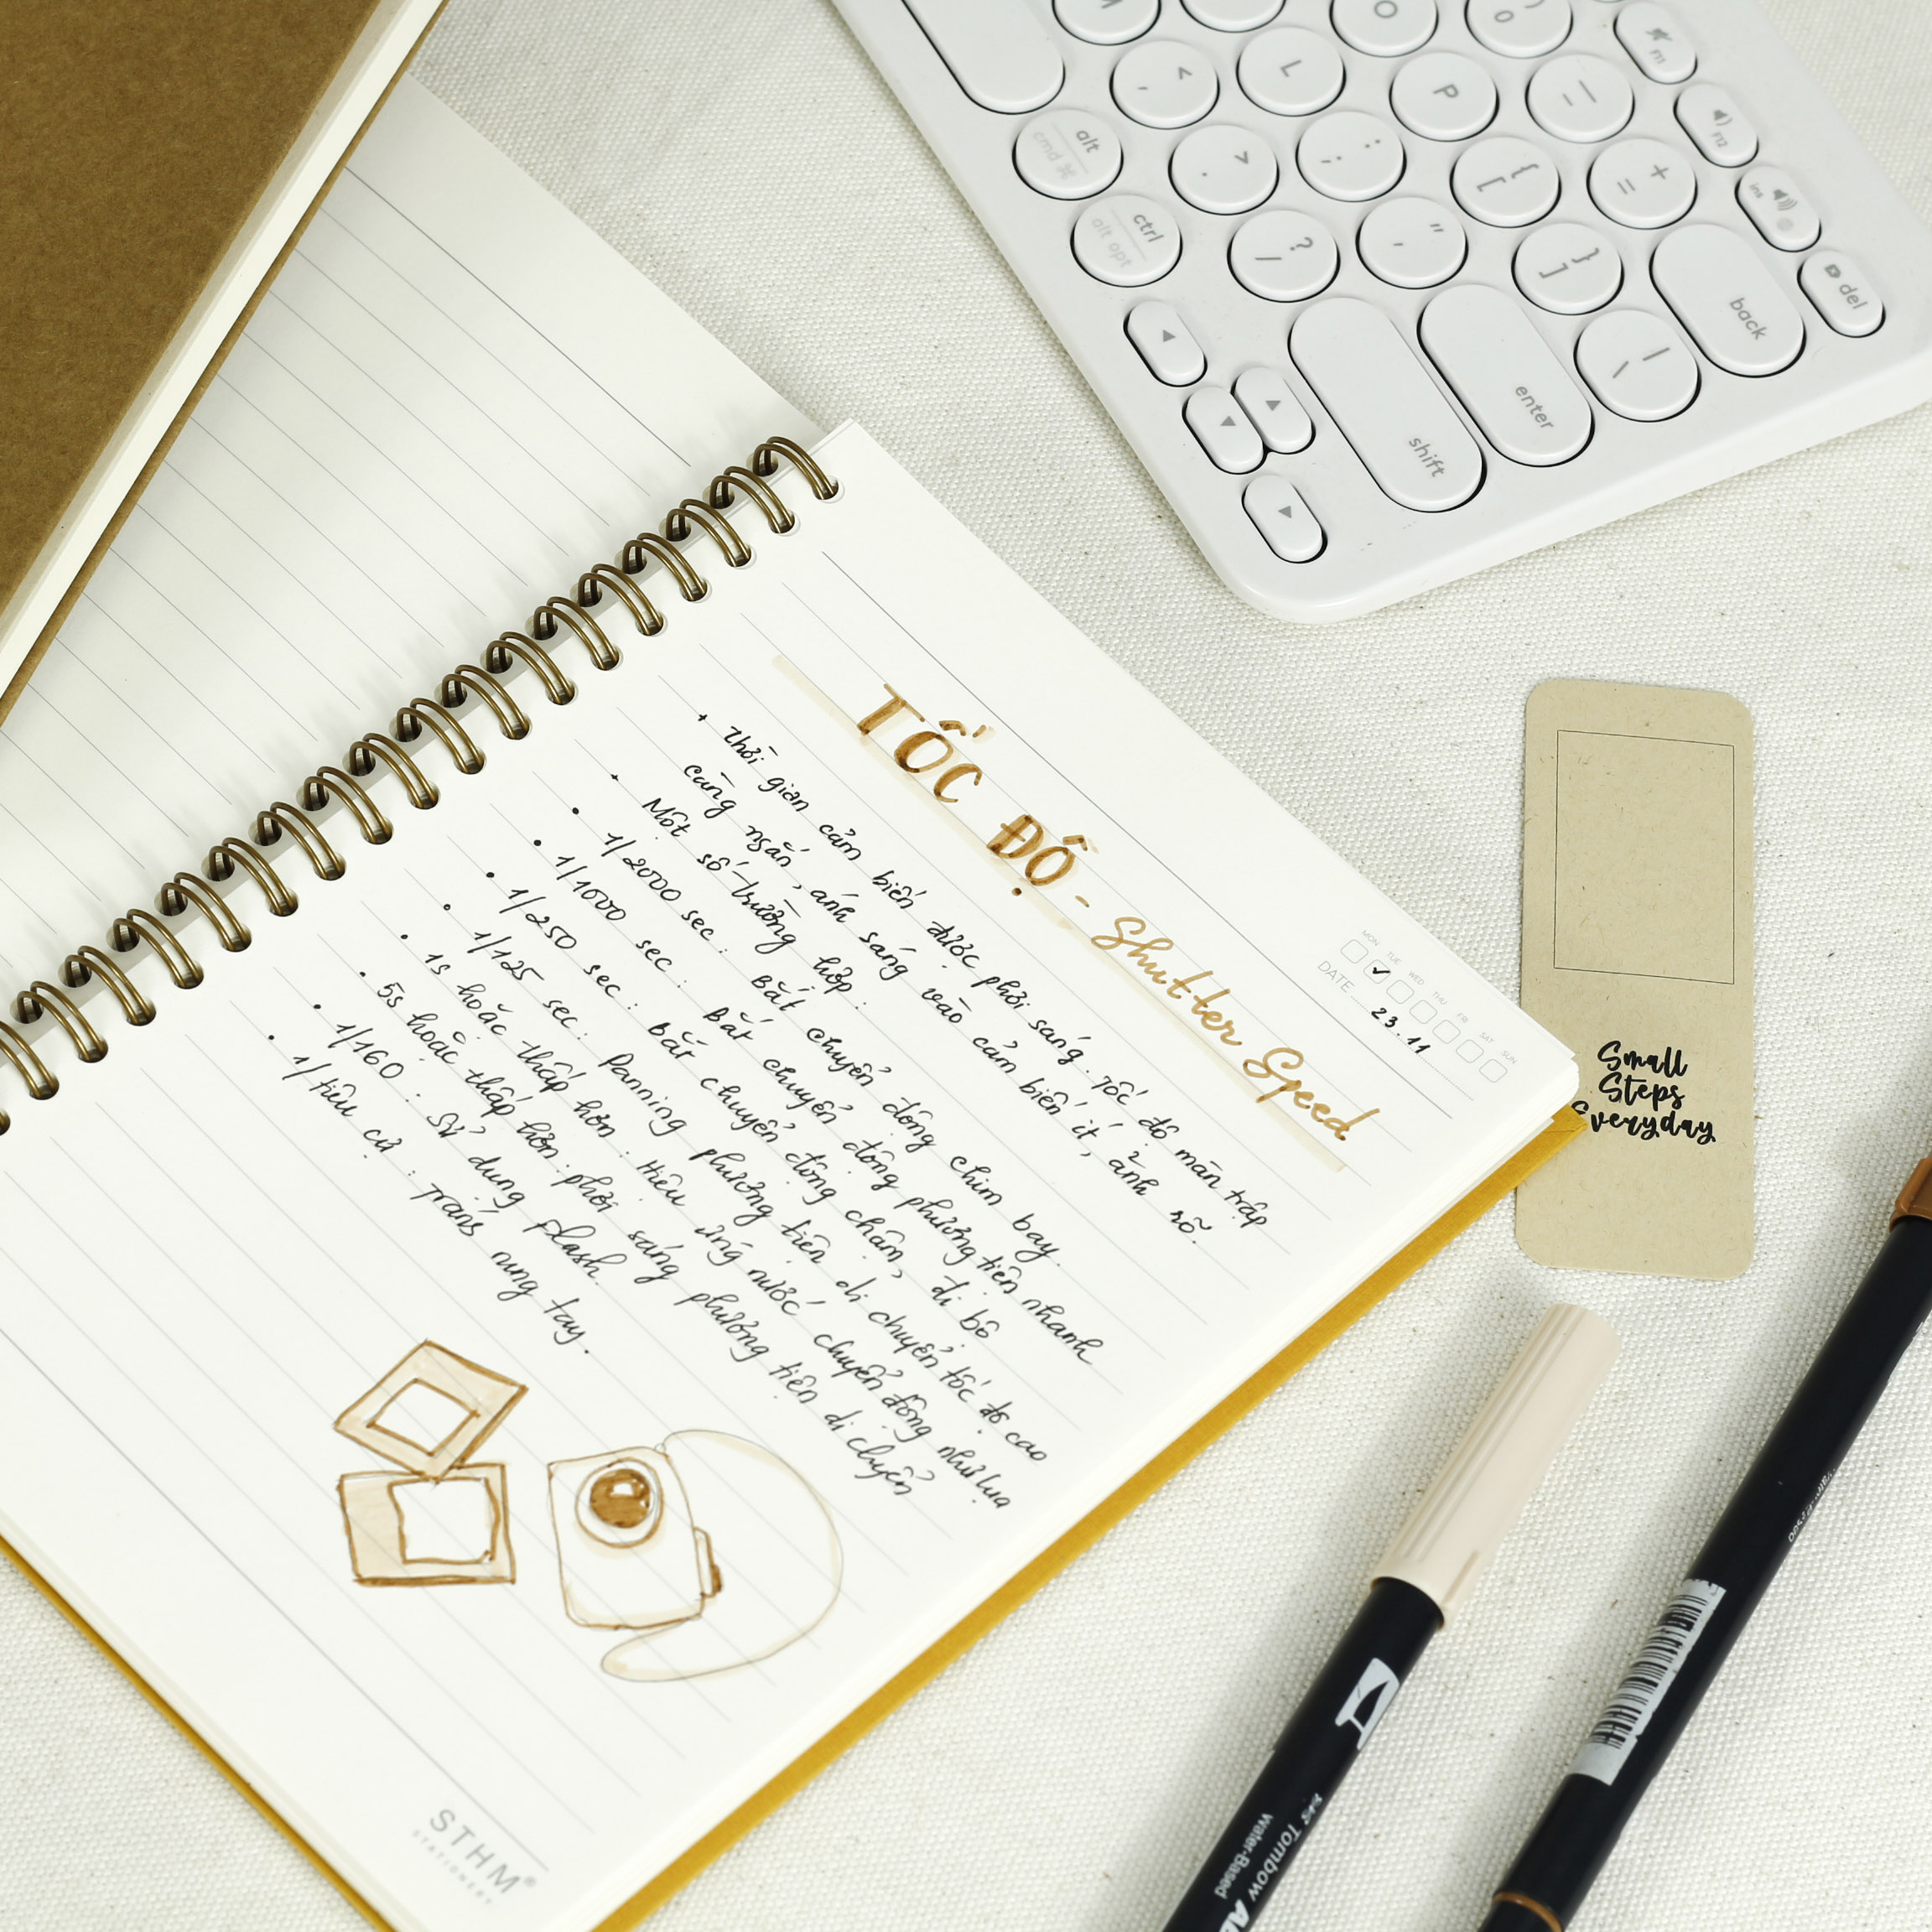 TỐC ĐỘ - Shutter Speed
MON TUE WED THU FRI SAT SUN
DATE 23.11
+ Thời gian cảm biến được phơi sáng. Tốc độ màn trập
càng ngắn, ánh sáng vào cảm biến ít, ảnh rõ.
+ Một số trường hợp:
• 1/2000 sec: Bắt chuyển động chim bay.
• 1/1000 sec: Bắt chuyển động phương tiện nhanh
• 1/250 sec: bắt chuyển động chậm, đi bộ
• 1/125 sec: Panning phương tiện di chuyển tốc độ cao
• 1s hoặc thấp hơn: Hiệu ứng nước chuyển động như lụa
• 5s hoặc thấp hơn: phơi sáng phương tiện di chuyển
• 1/160: Sử dụng flash.
• 1/tiêu cự: Tránh rung tay.
STHM®
STATIONERY
Small
Steps
Everyday
alt
cmd ⌘
ctrl
alt opt
< ,
> .
? /
L
: ;
" '
O
P
{ [
} ]
) 0
_ -
+ =
| \
shift
enter
back
F11
F12
ins
del
Tombow
Water-Based